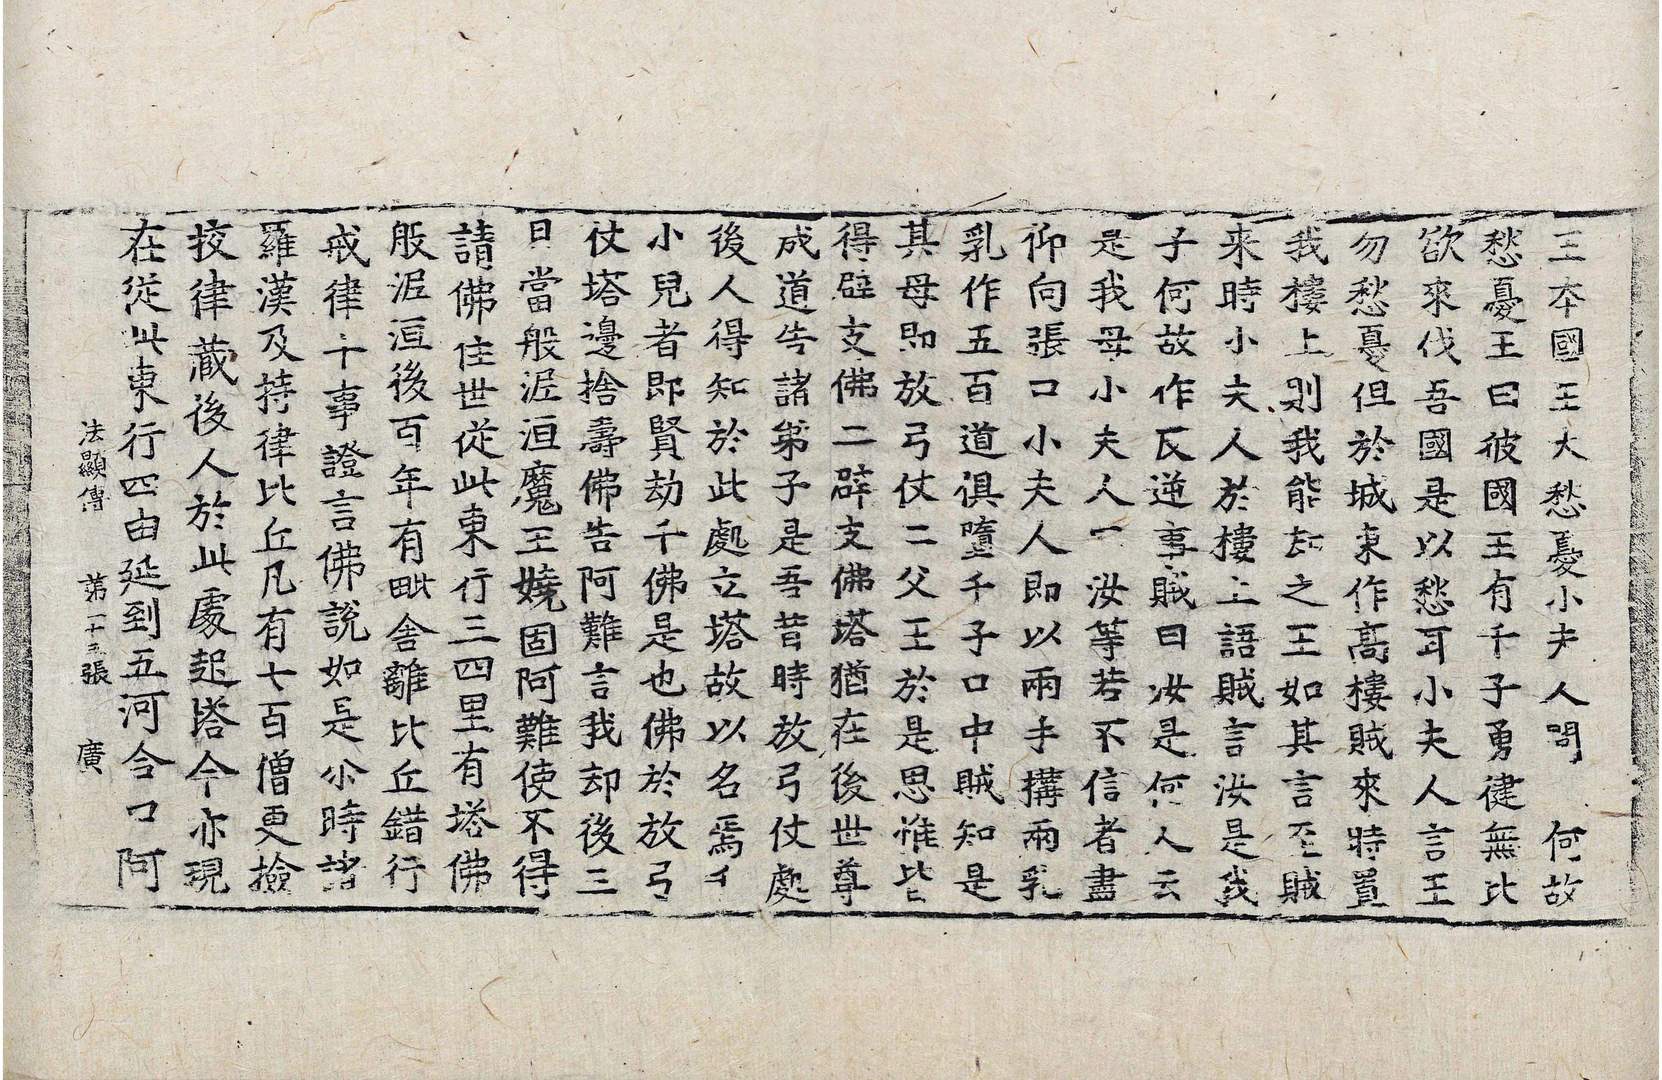 王本國王王大愁憂小夫人問何故
愁憂王曰彼國王有千子勇健無比
欲來伐吾國是以愁耳小夫人言王
勿愁憂但於城東作高樓賊來時置
我樓上則我能却之王如其言至賊
来時小夫人於樓上語賊言汝是我
子何故作反逆事賊曰汝是何人云
是我母小夫人曰汝等若不信者盡
仰向張口小夫人即以兩手搆兩乳
乳作五百道俱墮千子口中賊知是
其母即放弓仗二父王於是思惟皆
得辟支佛二辟支佛塔猶在後世尊
成道告諸弟子是吾昔時放弓仗處
後人得知於此處立塔故以名焉千
小兒者即賢劫千佛是也佛於放弓
仗塔邊捨壽佛告阿難言我却後三
月當般泥洹魔王嬈固阿難使不得
請佛住世從此東行三四里有塔佛
般泥洹後百年有毗舍離比丘錯行
戒律十事證言佛說如是尒時諸
羅漢及持律比丘凡有七百僧更撿
挍律藏後人於此處起塔今亦現
在從此東行四由延到五河合口阿
法顯傳 第二十五張 廣